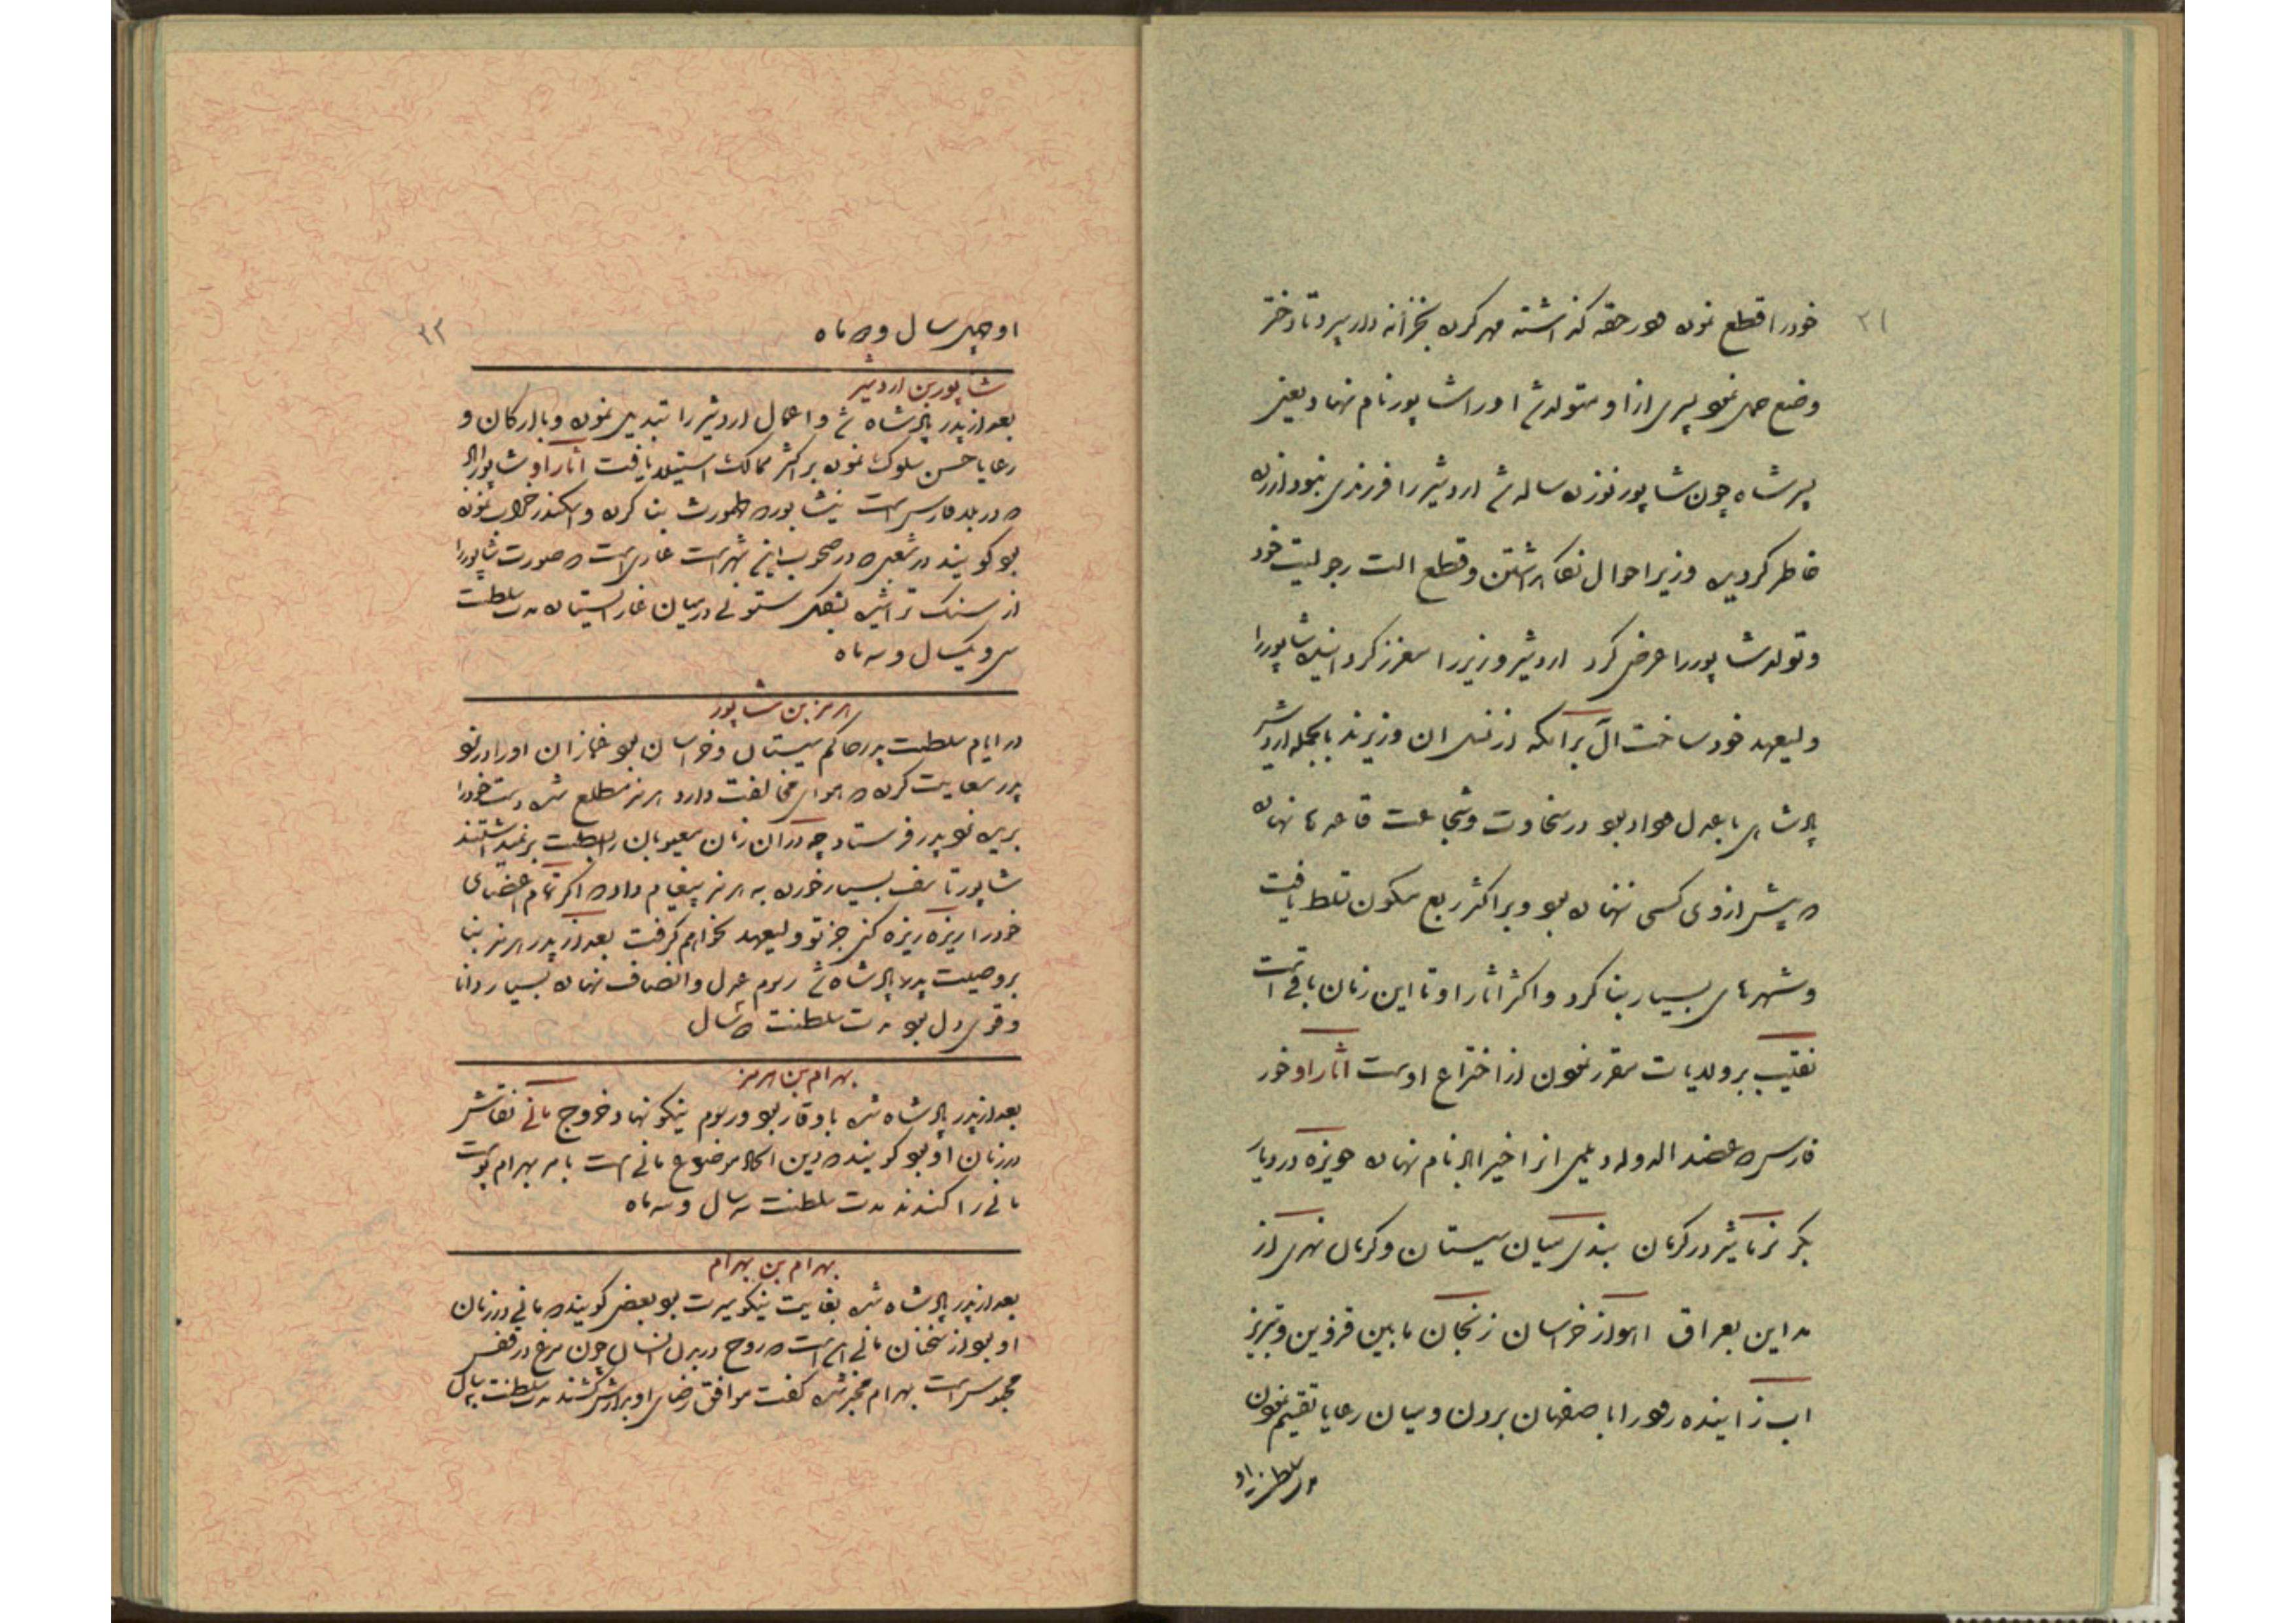 ۲۱
خودرا قطع نموده در حقه گذاشته مهر کرده بخزانه دار سپرد تا دختر
وضع حمل نمود پسری ازاو متولد شد اورا شاپور نام نهاد یعنی
پسر شاه چون شاپور نوزده ساله شد اردشیر را فرزندی نبود ازرده
خاطر گردیده وزیر احوال نگاه داشتن وقطع الت رجولیت خود
وتولد شاپوررا عرض کرد اردشیر وزیررا معزز گردانیده شاپوررا
ولیعهد خود ساخت آل برامکه از نسل ان وزیرند بالجمله اردشیر
پادشاهی با عدل وداد بود در سخاوت وشجاعت قاعدها نهاده
که پیش ازوی کسی ننهاده بود وبر اکثر ربع مسکون تسلط یافت
وشهرهای بسیار بنا کرد واکثر اثار او تا این زمان باقی است
نقیب بر ولایات مقرر نمودن از اختراع اوست اثار او خور
فارس که عضد الدوله دیلمی انرا خیر اباد نام نهاده حویزه در دیار
بکر نرماشیر در کرمان بندی میان سیستان وکرمان نهری از
مداین بعراق اهواز خراسان زنجان مابین قزوین وتبریز
اب زاینده رودرا باصفهان بردن ومیان رعایا تقسیم نمودن
مدت سلطنت او
۲۲
او چهل سال وده ماه
شاپور بن اردشیر
بعد از پدر پادشاه شد واعمال اردشیر را تبدیل نموده وبا ارکان و
رعایا حسن سلوک نموده بر اکثر ممالک استیلا یافت اثار او شاپور اباد
که در بلد فارس است نیشابور که طهمورث بنا کرده واسکندر خراب نموده
بود گویند در که در جنوب این شهر است غاری است که صورت شاپوررا
از سنگ تراشیده بشکل ستونی درمیان غار ایستاده مدت سلطنت
سی ویکسال وسه ماه
هرمز بن شاپور
در ایام سلطنت پدر حاکم سیستان وخراسان بود غمازان اورا در نزد
پدر سعایت کرده که هوای مخالفت دارد هرمز مطلع شده دست خودرا
بریده نزد پدر فرستاد چه دران زمان معیوبان را بسلطنت برنمیداشتند
شاپور تاسف بسیار خورده به هرمز پیغام داد که اگر تمام اعضای
خودرا ریزه ریزه کنی جز تو ولیعهد نخواهم گرفت بعد از پدر هرمز بنا
بر وصیت پدر پادشاه شد رسوم عدل وانصاف نهاده بسیار دانا
وقوی دل بود مدت سلطنت ده سال
بهرام بن هرمز
بعد از پدر پادشاه شده باوقار بود ورسوم نیکو نهاد خروج مانی نقاش
در زمان او بود گویند که دین اکاد موضوع مانی است بامر بهرام پوست
مانی را کندند مدت سلطنت سه سال وسه ماه
بهرام بن بهرام
بعد از پدر پادشاه شده بغایت نیکو سیرت بود بعضی گویند که مانی در زمان
او بود از سخنان مانی این است که روح در بدن انسان چون مرغ در قفس
محبوس است بهرام مخبر شده گفت موافق رضای او برادرش کشتند مدت سلطنت سال